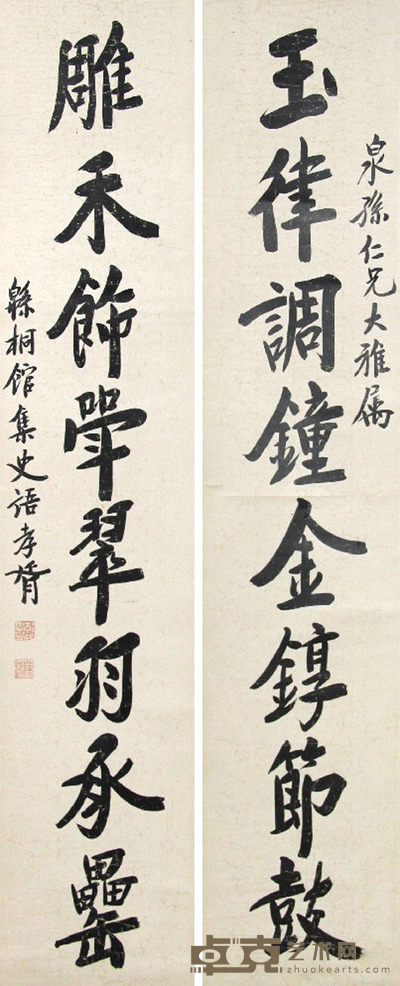 泉孫仁兄大雅属
玉律調鐘金錞節鼓
雕禾飾斝翠羽承罍
緜桐館集史語孝胥
卓克艺术网
zhuokearts.com